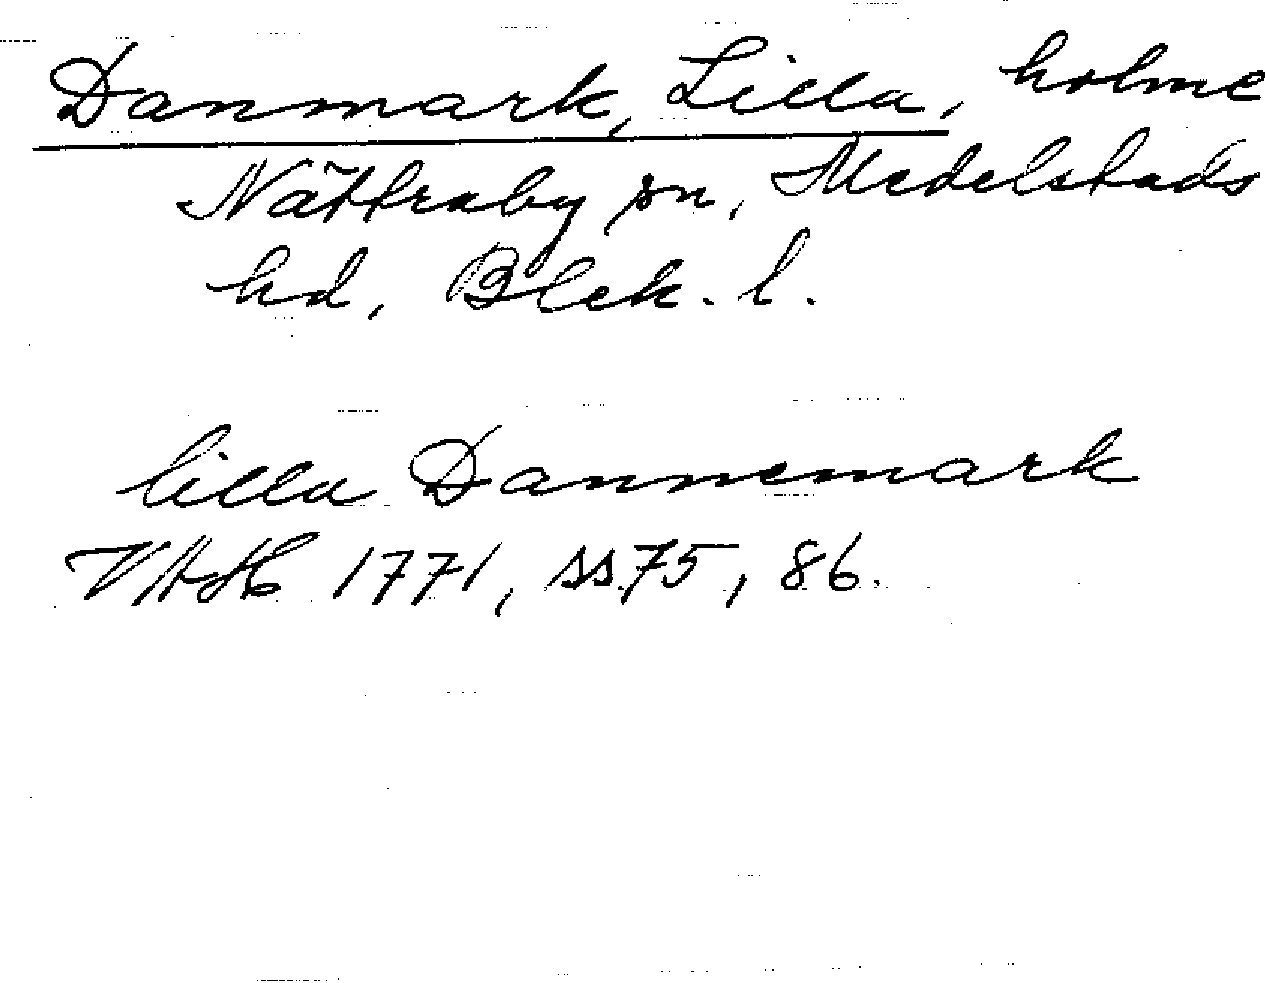 Danmark, Lilla, holme
Nättraby sn, Medelstads
hd, Blek. l.
lilla Dannemark
VAH 1771, ss.75, 86.